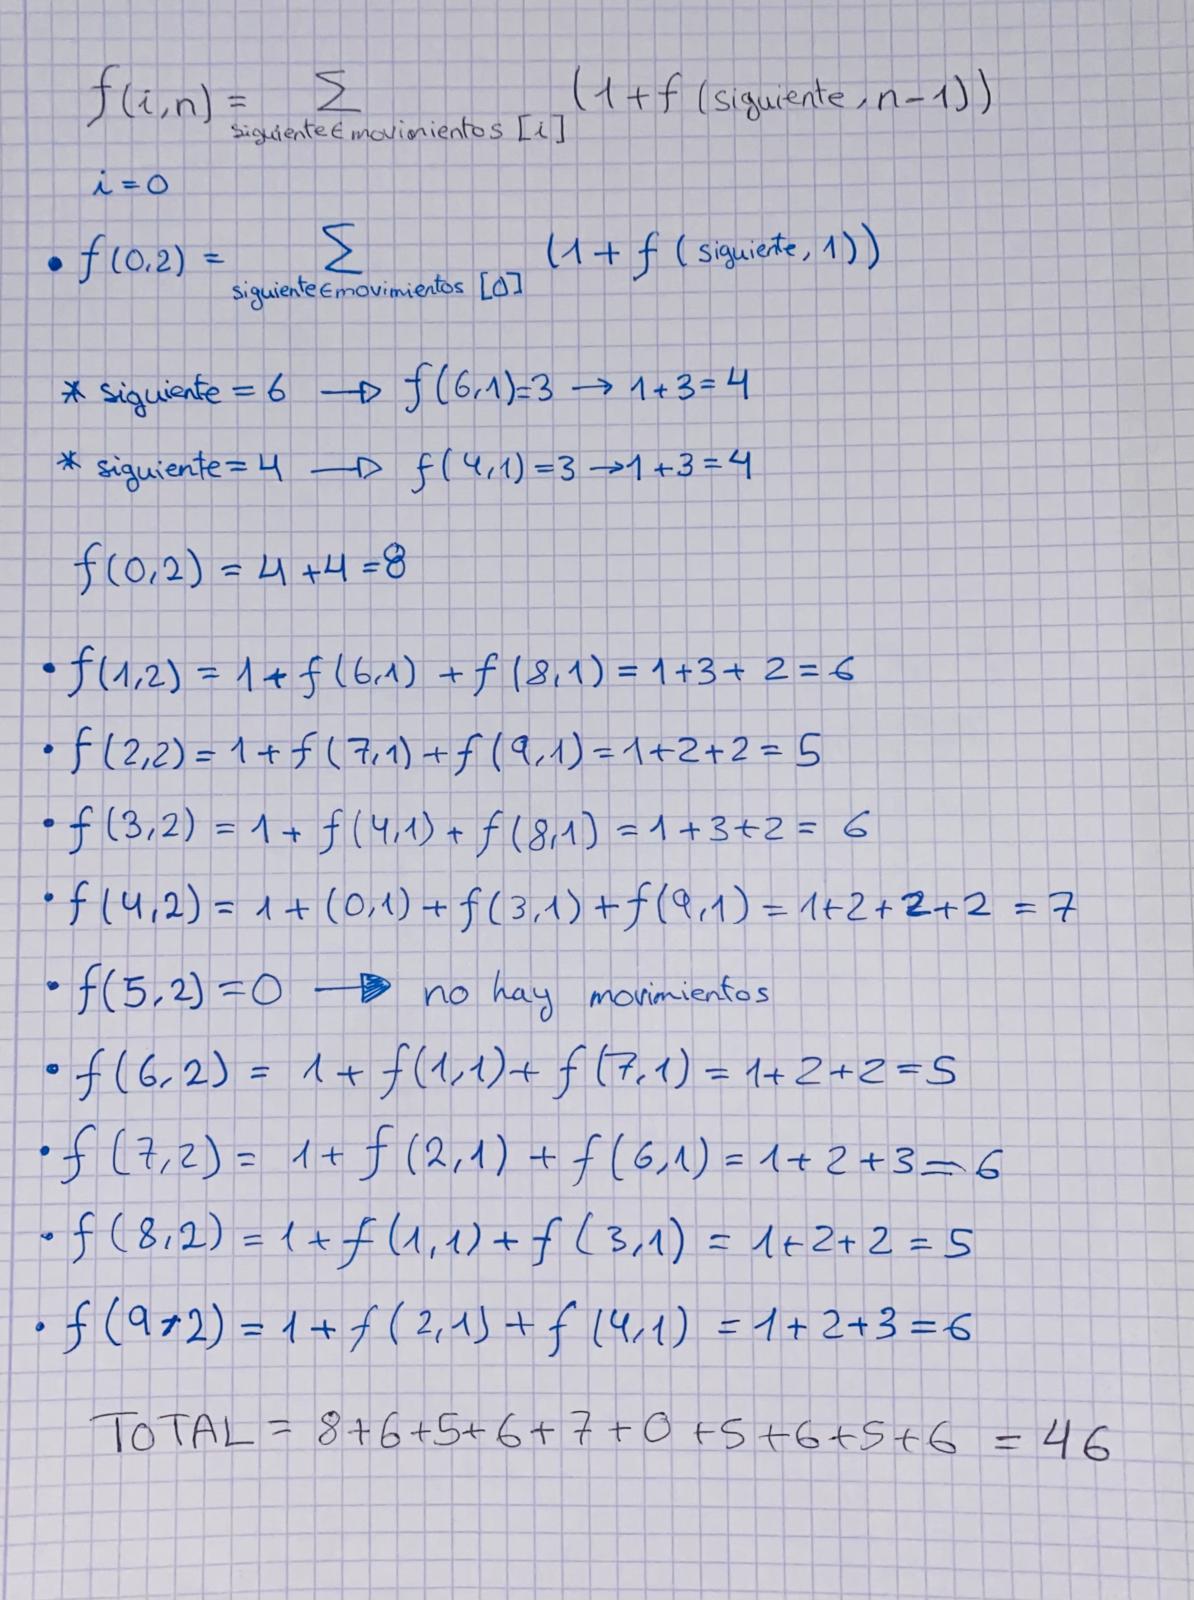 f(i,n) = Σ (1+f(siguiente, n-1))
siguiente∈movimientos [i]
i=0
• f(0,2) = Σ (1+f(siguiente, 1))
siguiente∈movimientos [0]
* siguiente = 6 → f(6,1)=3 → 1+3=4
* siguiente = 4 → f(4,1)=3 → 1+3=4
f(0,2) = 4+4=8
• f(1,2) = 1+f(6,1) + f(8,1) = 1+3+2=6
• f(2,2) = 1+f(7,1)+f(9,1)=1+2+2=5
• f(3,2) = 1+ f(4,1)+f(8,1) =1+3+2= 6
• f(4,2) = 1+(0,1)+f(3,1)+f(9,1) = 1+2+2+2 = 7
• f(5,2)=0 → no hay movimientos
• f(6,2) = 1+ f(1,1)+ f(7,1) = 1+2+2=5
• f(7,2) = 1+f(2,1) + f(6,1) = 1+2+3=6
• f(8,2) = 1+f(1,1)+f(3,1) = 1+2+2 = 5
• f(9,2) = 1+f(2,1)+f(4,1) = 1+2+3=6
TOTAL = 8+6+5+6+7+0+5+6+5+6 = 46